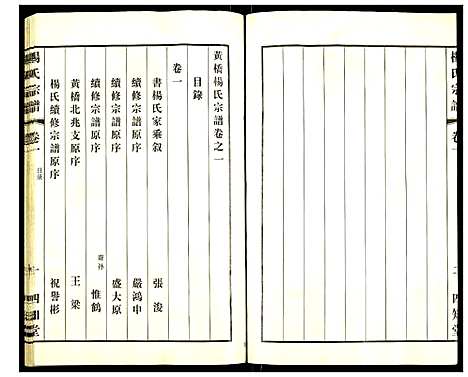 楊氏宗譜
卷一
二
四知堂
黃橋楊氏宗譜卷之一
目錄
卷一
書楊氏家乘敘 張浚
續修宗譜原序 嚴鴻申
續修宗譜原序 盛大原
續修宗譜原序 裔孫 惟鶴
黃橋北兆支原序 王梁
楊氏續修宗譜原序 祝譽彬
楊氏宗譜
卷一
目錄
一
四知堂